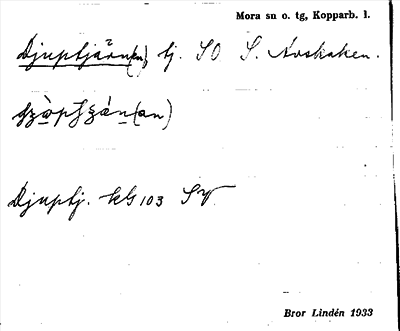 Mora sn o. tg, Kopparb. l.
Djuptjärn(en) tj. SO S. Årskaken.
Djuptj. kG 103 SV
Bror Lindén 1933